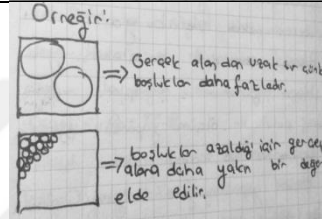 Örneğin:
=> Gerçek alan dan uzak
boşluklar daha fazladır.
boşluklar azaldığı için
=> alana daha yakın bir
elde edilir.